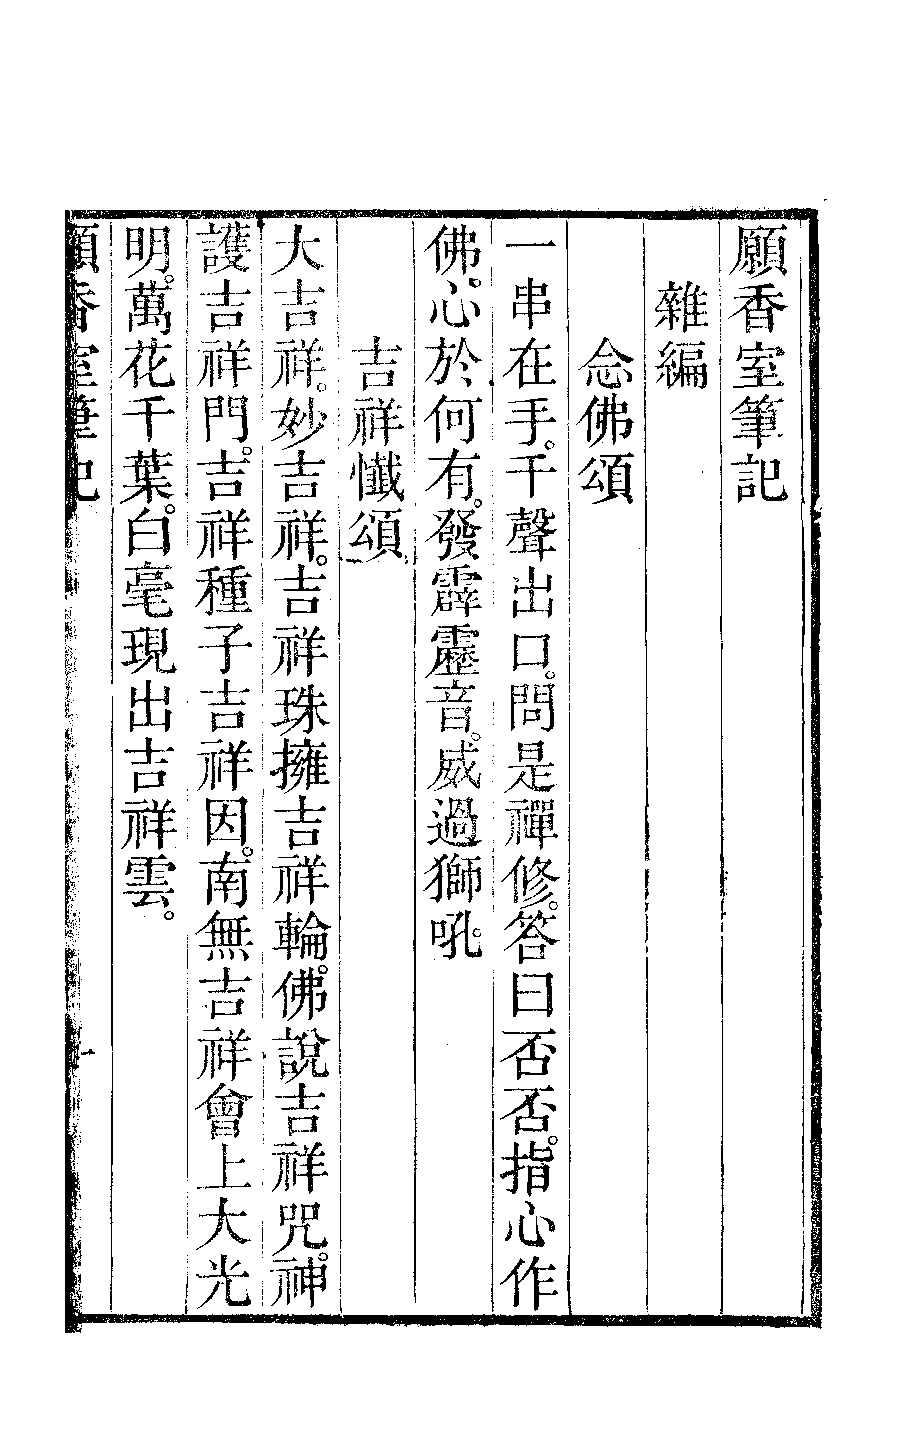 願香室筆記
雜編
念佛頌
一串在手。千聲出口。問是禪修。答曰否否。指心作
佛。心於何有。發霹靂音。威過獅吼。
吉祥懺頌
大吉祥。妙吉祥。吉祥珠擁吉祥輪。佛說吉祥咒。神
護吉祥門。吉祥種子吉祥因。南無吉祥會上大光
明。萬花千葉。白毫現出吉祥雲。
願香室筆記 一